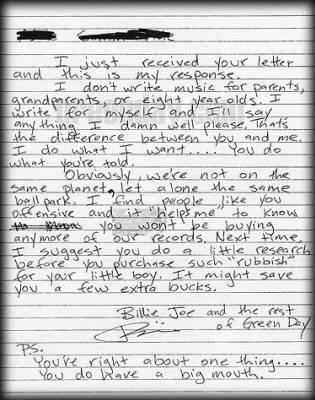 I just received your letter
and this is my response.
I don't write music for parents,
grandparents, or eight year olds. I
write for myself and I'll say
anything I damn well please. Thats
the difference between you and me.
I do what I want.... You do
what you're told.
Obviously, we're not on the
same planet, let alone the same
ballpark. I find people like you
offensive and it helps me to know
you won't be buying
anymore of our records. Next time
I suggest you do a little research
before you purchase such "rubbish"
for your little boy. It might save
you a few extra bucks.
Billie Joe and the rest
of Green Day
P.S.
You're right about one thing....
You do have a big mouth.